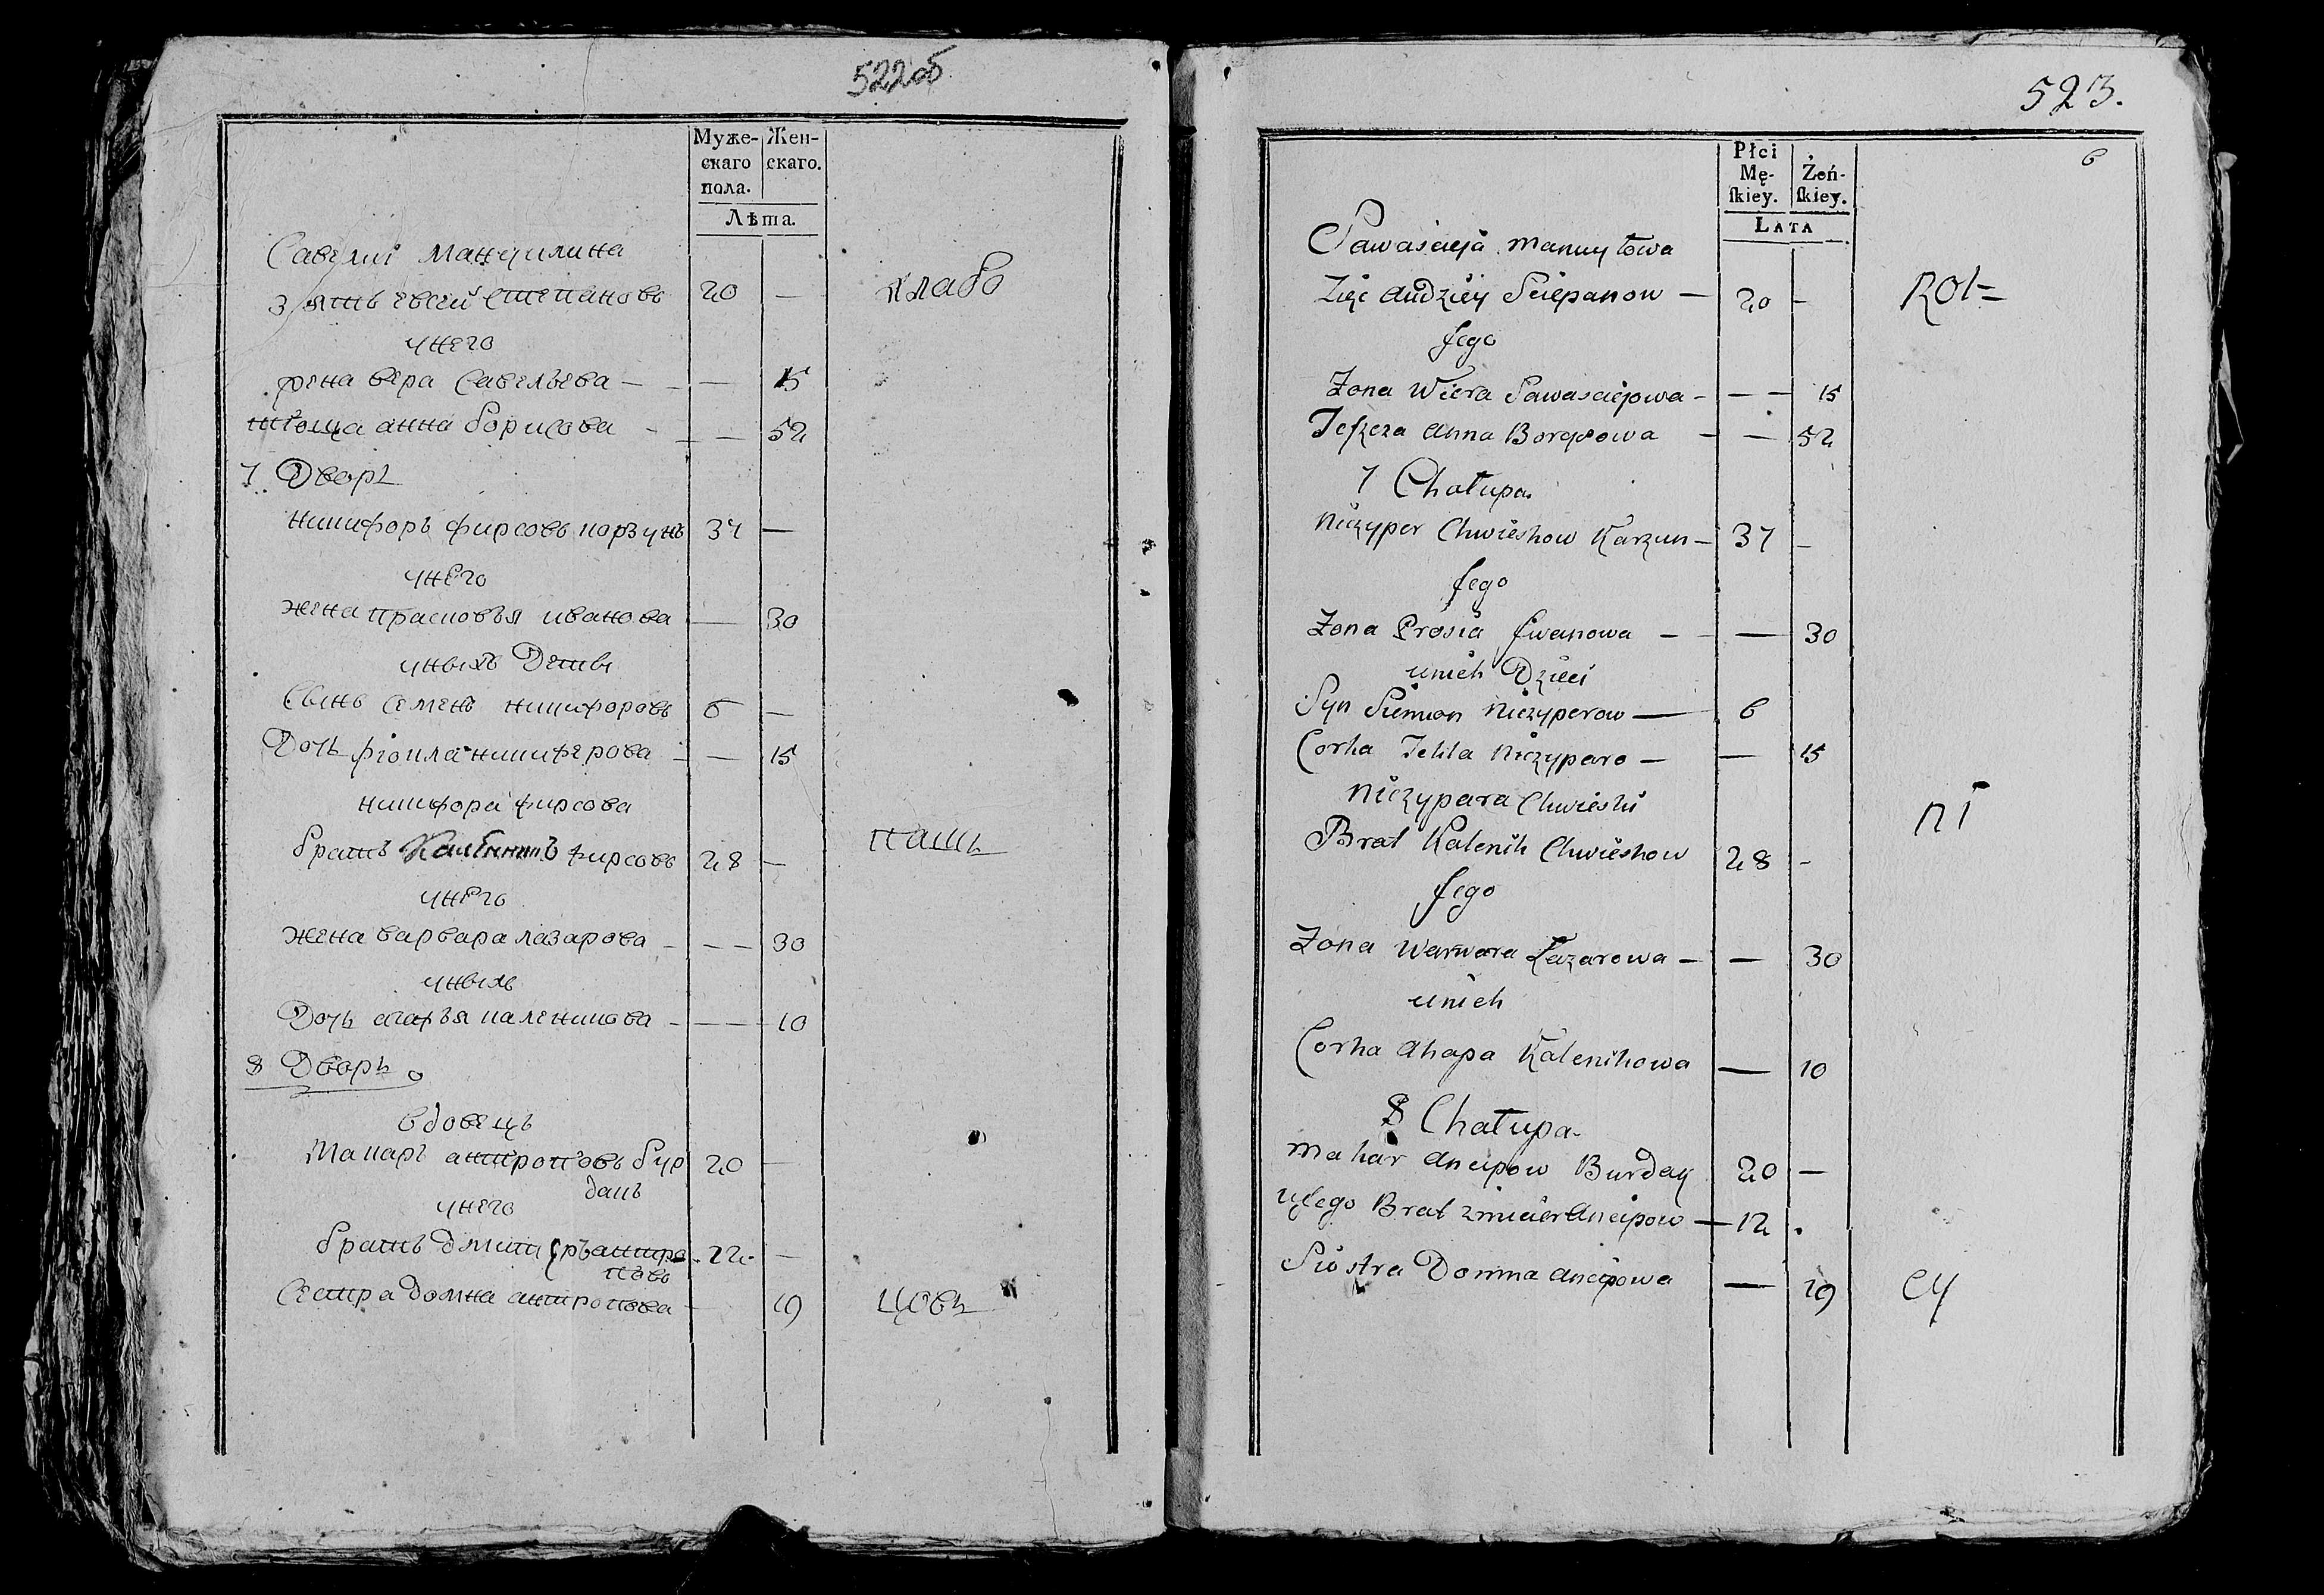 522об
Муже-
скаго
пола.
Жен-
скаго.
Лѣта.
Савелиі Мануилина
зять евсей Степановъ 20 —
унего
жена вера Савельева — — 15
тіоща анна борисова — — 52
7 Дворъ
никифоръ фирсовъ корзунъ 37 —
унего
жена прасковъя иванова — 30
уныхъ Дети
Сынъ Семенъ никифоровъ 6 —
Дочь фіокла никиферова — — 15
никифора фирсова
братъ фирсовъ 28 —
унего
жена варвара лазарова — — — 30
уныхъ
Дочь каленикова — — — 10
8 Дворъ
вдовецъ
Макаръ антроповъ бур 20 —
унего
братъ антро 12 —
повъ
Сестра домна антропова — 19
цовъ
523.
6
Płci
Mę-
ſkiey.
Żeń-
ſkiey.
LATA
Zięć Andziey Sciepanow — 20 —
jego
Żona Wiera Sawasciejowa — — — 15
Teſzcza Anna Borysowa — — 52
7 Chałupa.
Niczyper Chwieskow Karzun — 37 —
jego
Żona Prosia Iwanowa — — 30
unich Dzieci
Syn Siemion Niczyperow — 6
Corka Tekla Niczyparo — — 15
Niczypara Chwieski
Brat Kalenik Chwieskow 28 —
jego
Żona Warwara Łazarowa — — 30
unich
Corka Ahapa Kalenikowa — 10
8 Chałupa.
Makar Ancipow Burday 20 —
ujego Brat Zmicier Ancipow — 12 .
Siostra Domna Ancipowa — 19
ni
cy